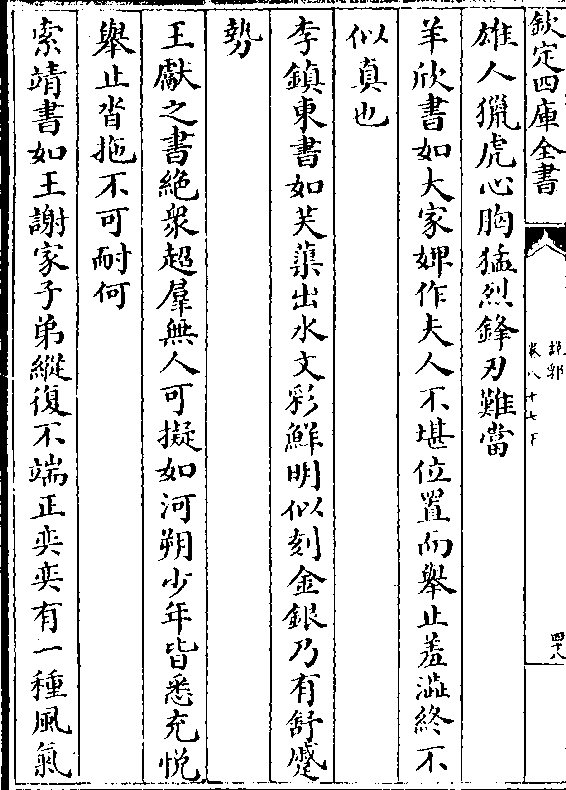 欽定四庫全書
說郛
卷八十七下
四十八
雄人獵虎心胸猛烈鋒刃難當
羊欣書如大家婢作夫人不堪位置而舉止羞澁終不
似真也
李鎮東書如芙蕖出水文彩鮮明似刻金銀乃有舒蹙
勢
王獻之書絶衆超羣無人可擬如河朔少年皆悉充悅
舉止沓拖不可耐何
索靖書如王謝家子弟縱復不端正奕奕有一種風氣